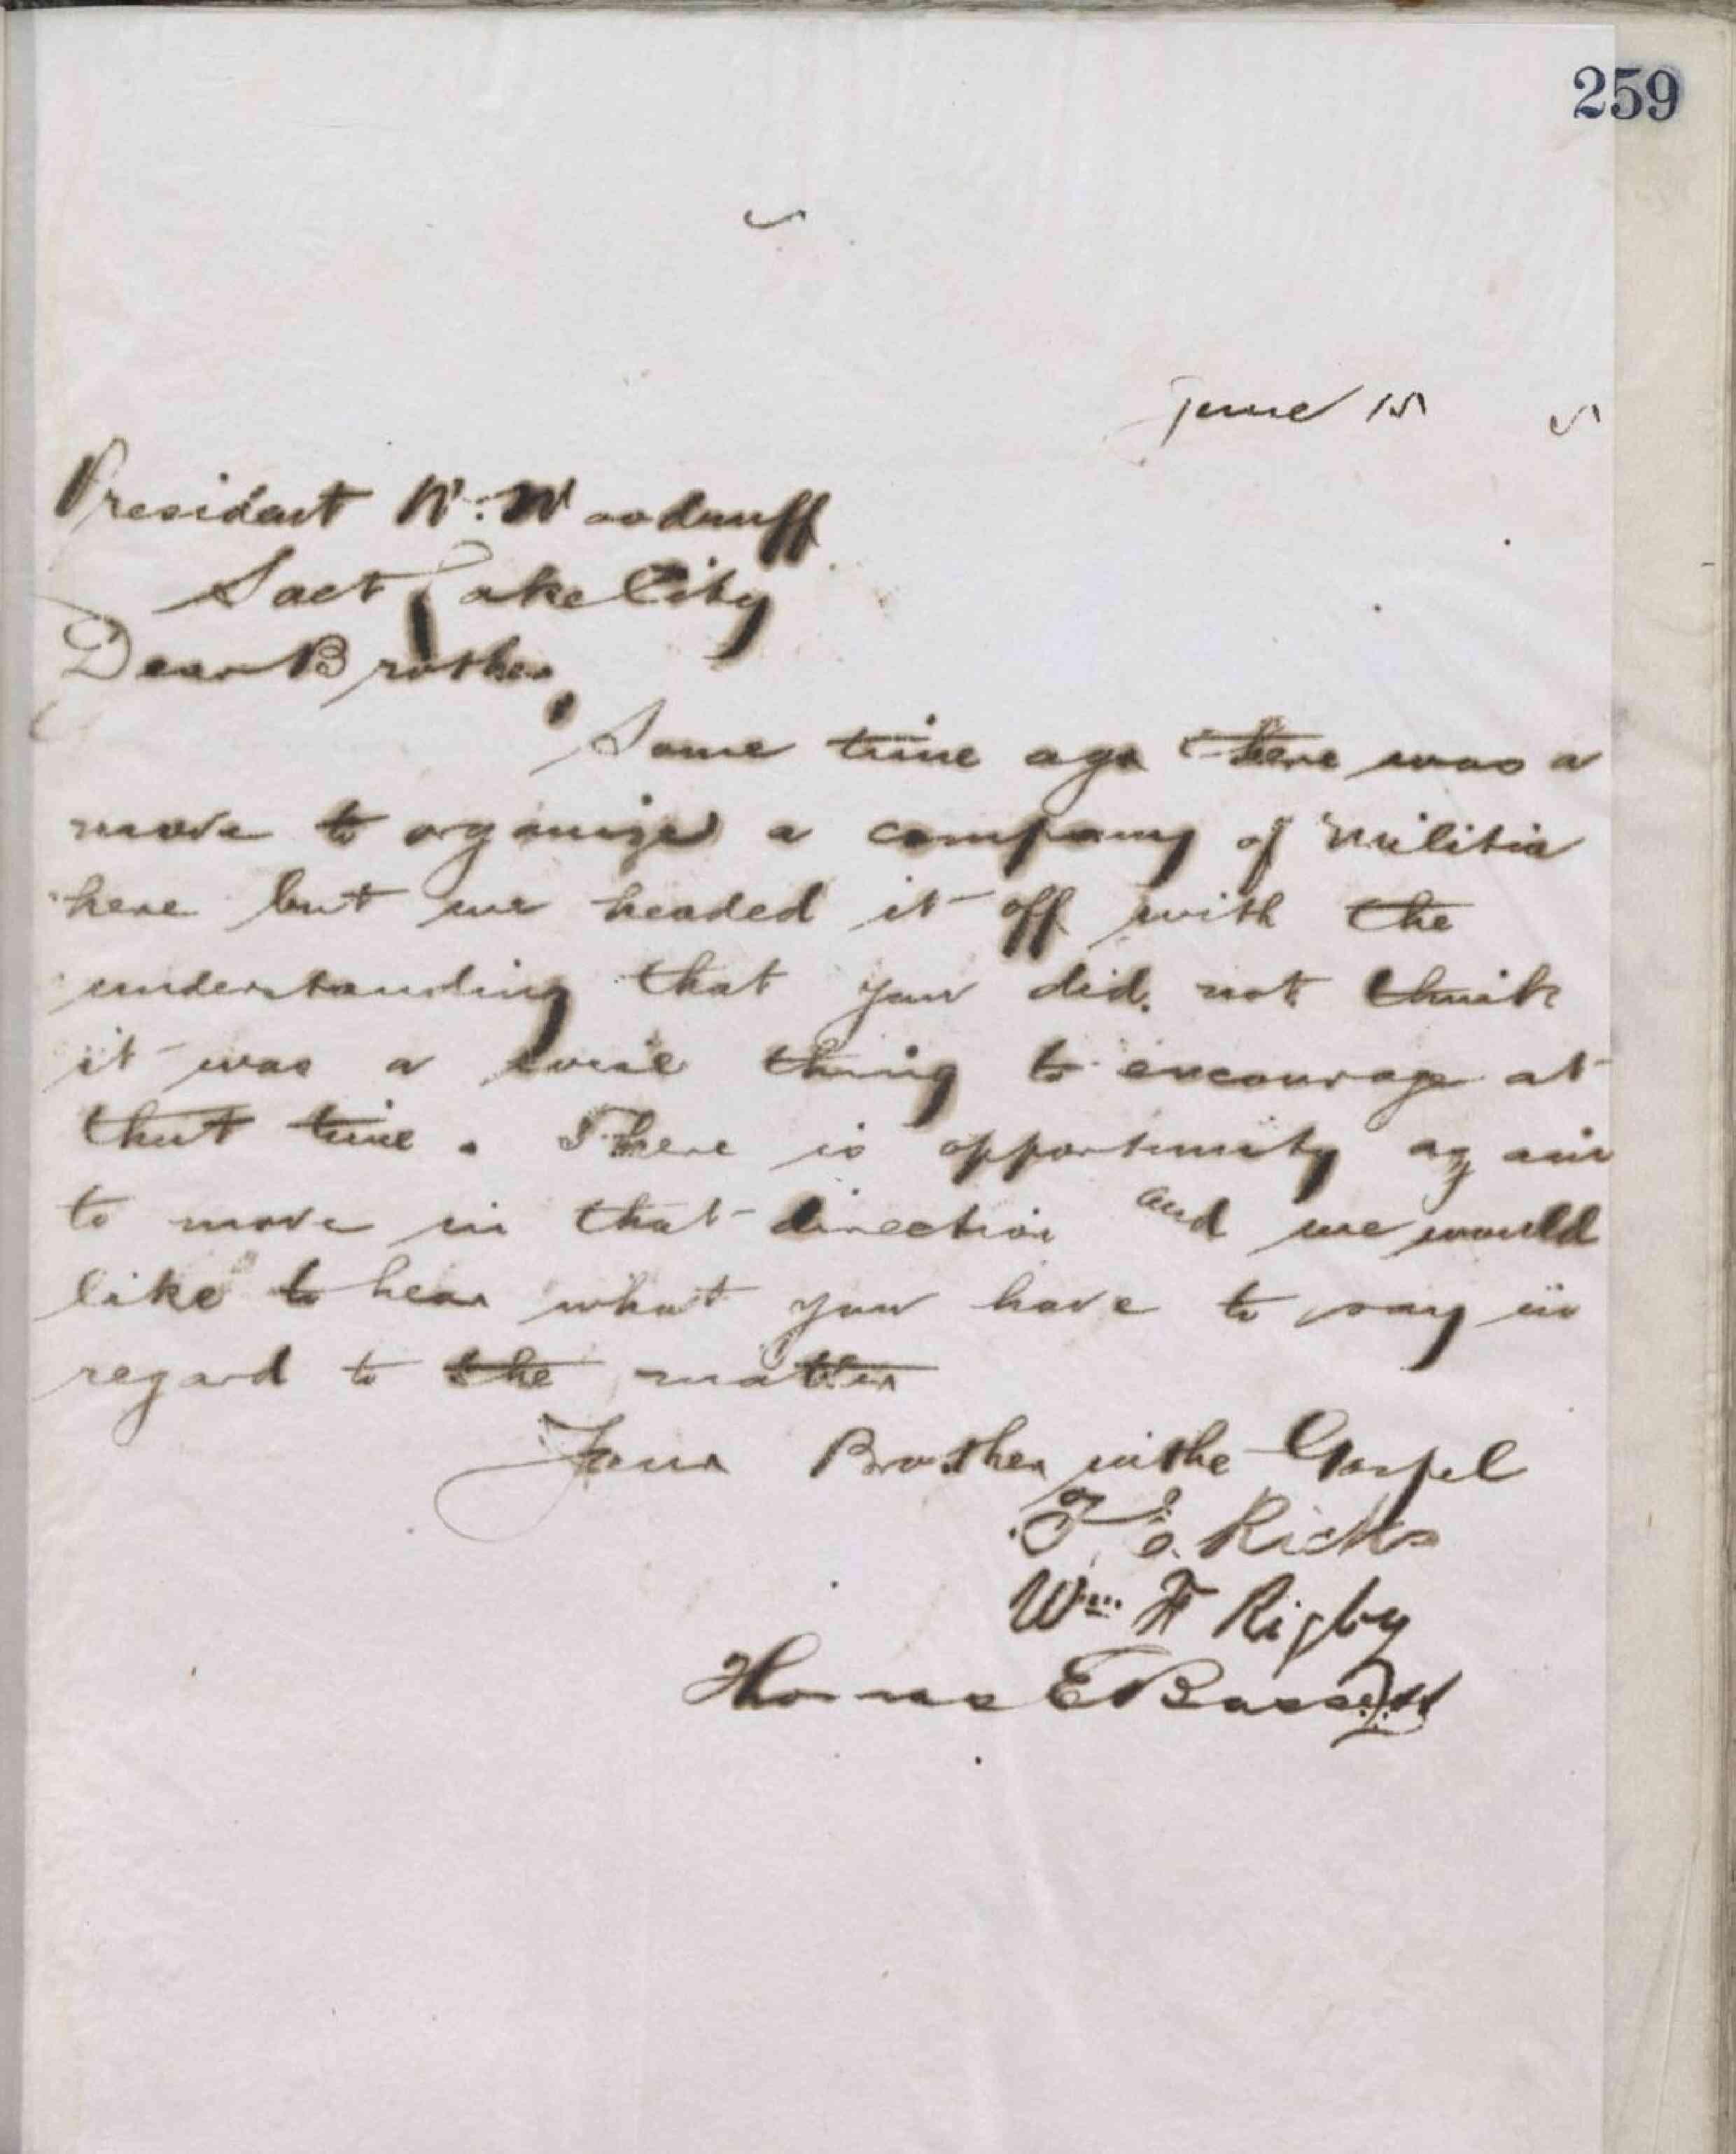 259
June 15
President W. Woodruff
Salt Lake City
Dear Brother,
Some time ago there was a
move to organize a company of militia
here but we headed it off with the
understanding that you did not think
it was a wise thing to encourage at
that time. There is opportunity again
to move in that direction and we would
like to hear what you have to say in
regard to the matter
Your Brother in the Gospel
T. E. Ricks
Wm F Rigby
Thomas E Bassett